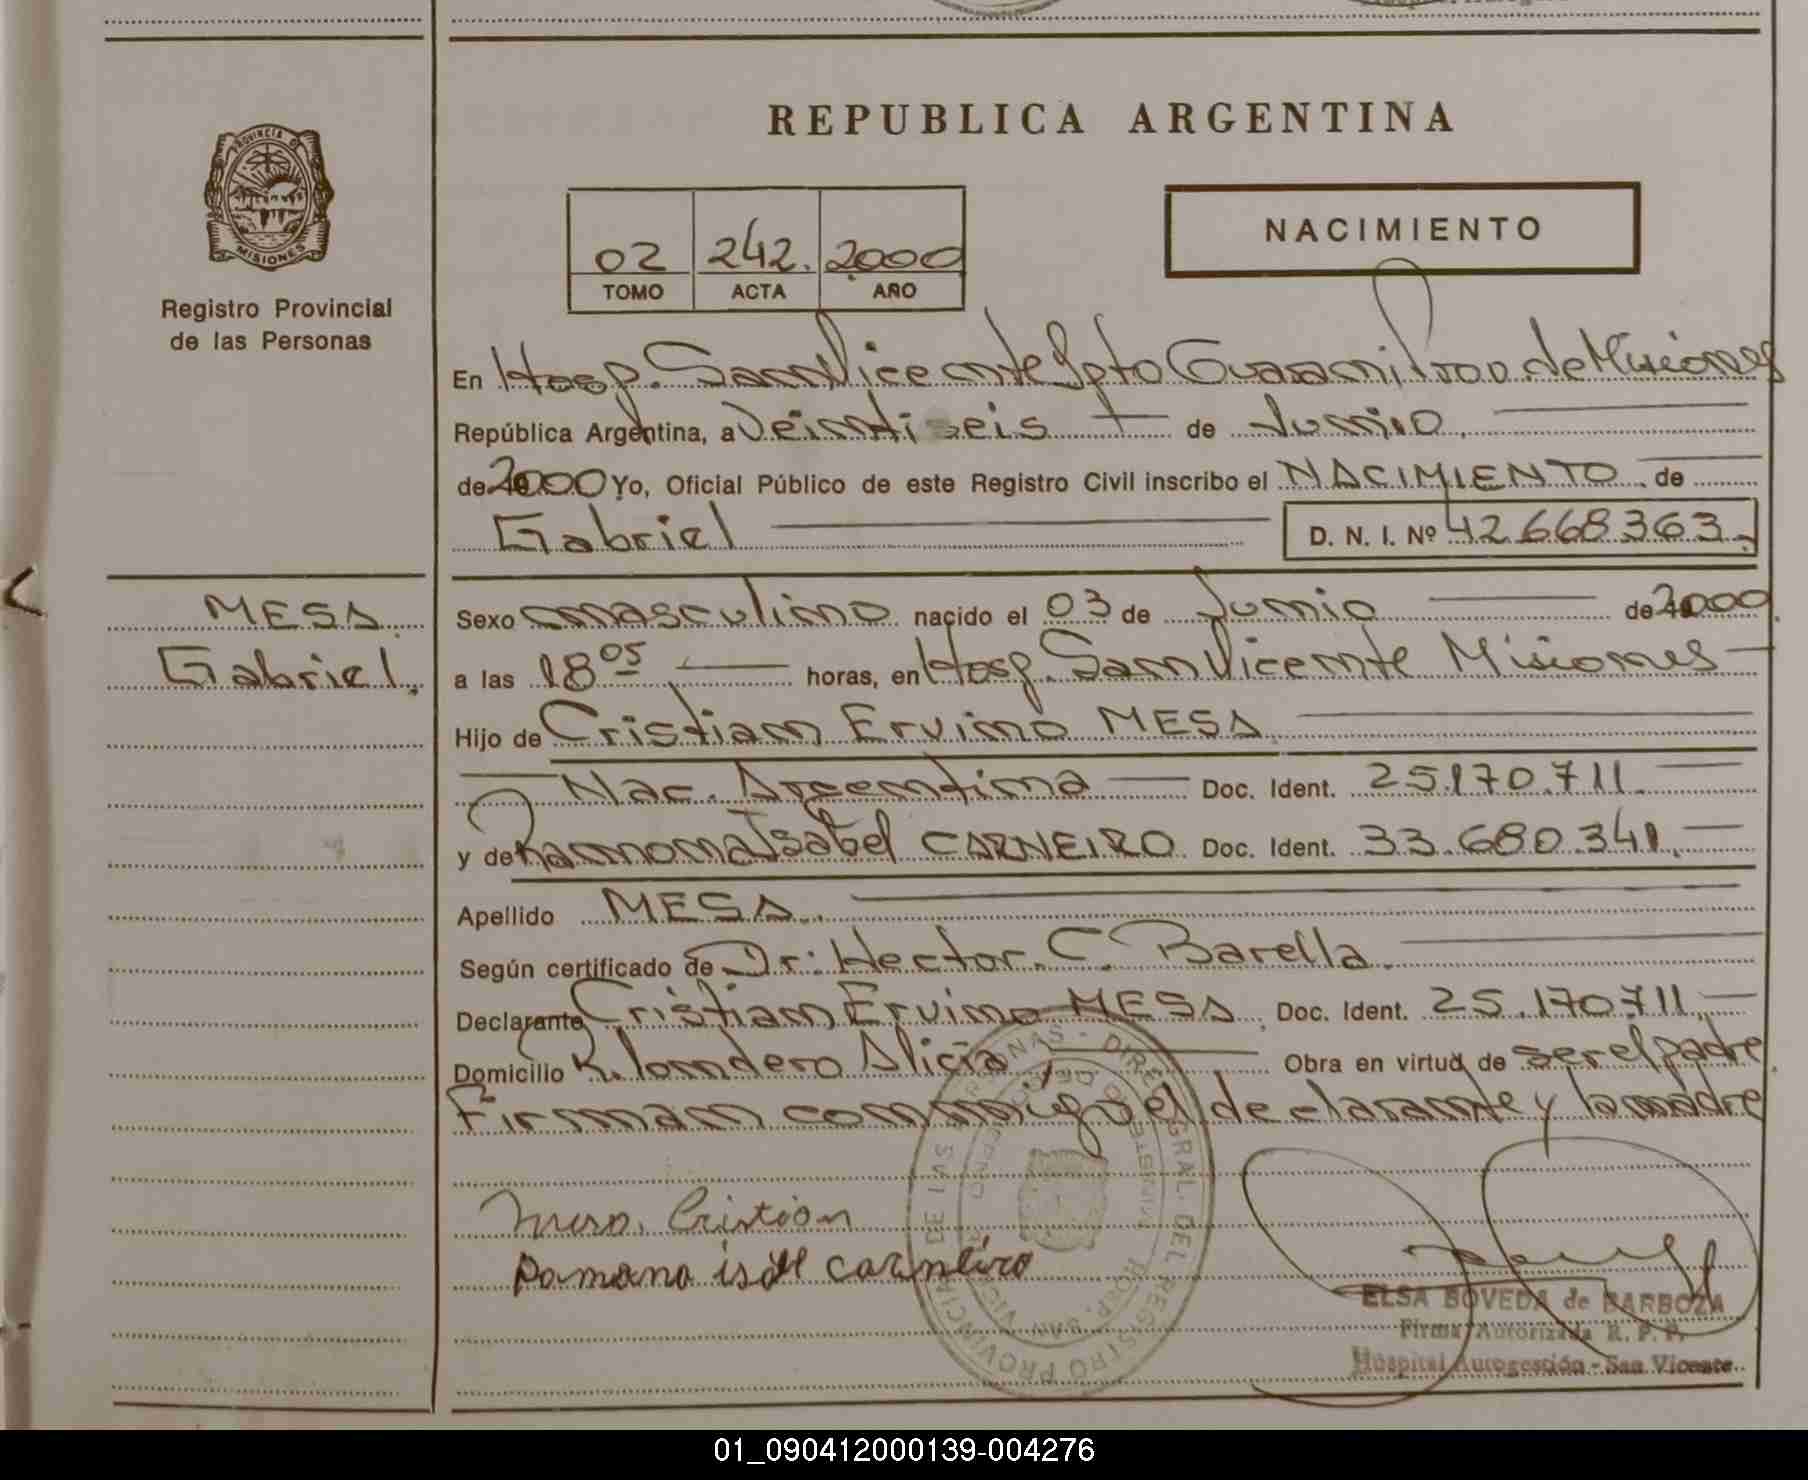 REPUBLICA ARGENTINA
PROVINCIA DE
MISIONES
Registro Provincial
de las Personas
02 242. 2000
TOMO ACTA AÑO
NACIMIENTO
En Hosp. San Vicente Dpto Guarani Prov. de Misiones
República Argentina, a Veintiseis de Junio
de 2000 Yo, Oficial Público de este Registro Civil inscribo el NACIMIENTO de
Gabriel D. N. I. Nº 42.668.363.
MESA
Gabriel.
Sexo masculino nacido el 03 de Junio de 2000
a las 18 05 horas, en Hosp. San Vicente Misiones
Hijo de Cristian Ervino MESA
Nac. Argentina Doc. Ident. 25.170.711.
y de Ramona Isabel CARNEIRO Doc. Ident. 33.680.341.
Apellido MESA
Según certificado de Dr: Hector. C. Barella.
Declarante Cristian Ervino MESA Doc. Ident. 25.170.711.
Domicilio R. londero Alicia Obra en virtud de ser el padre
Firman conmigo el declarante y la madre
Cristian
Ramona carneiro
ELSA BOVEDA de BARBOZA
Firma Autorizada R. P. P.
Hospital Autogestión - San Vicente
01_090412000139-004276